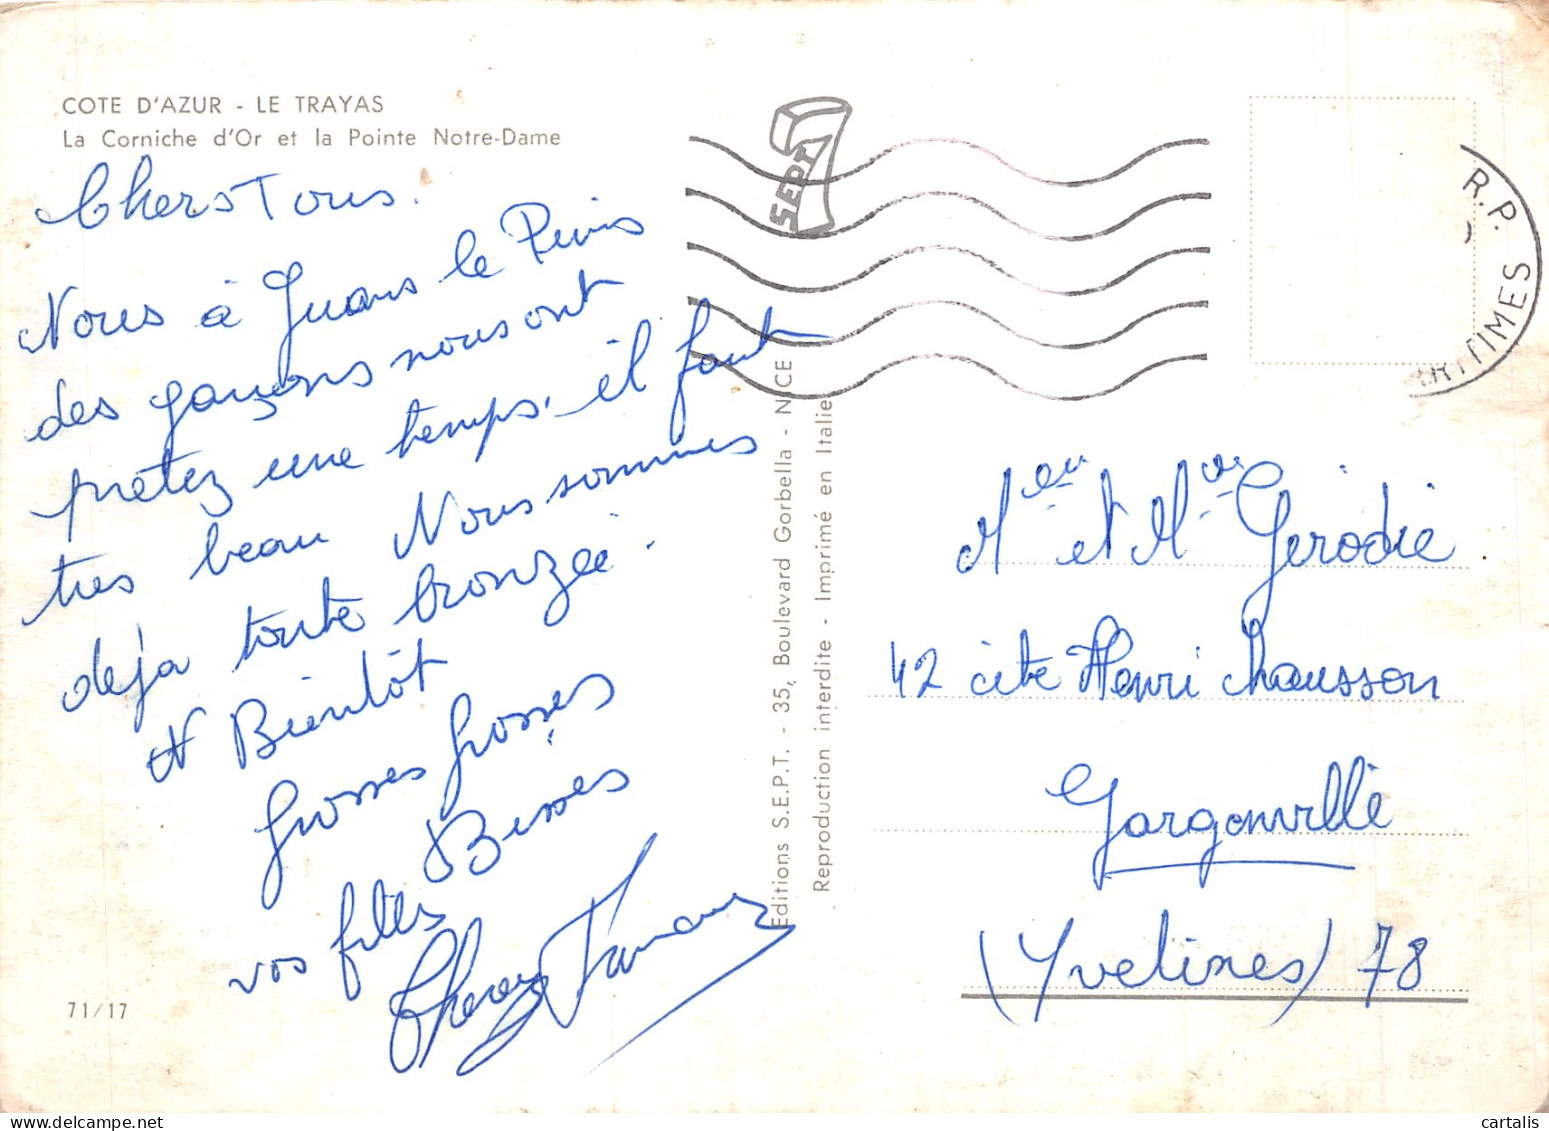 COTE D'AZUR - LE TRAYAS
La Corniche d'Or et la Pointe Notre-Dame
Chers Tous.
Nous à Juans le Pins
des garçons nous ont
pretez une temps. il faut
tres beau Nous sommes
deja toute bronzée.
A Bientôt
Grosses Grosses
Bisses
vos filles
71/17
SEPT
Editions S.E.P.T. - 35, Boulevard Gorbella - NICE
Reproduction interdite - Imprimé en Italie
R.P.
RITIMES
Meu et Mr Gerodie
42 cite Henri Chausson
Gargenville
(Yvelines) 78
cartalis